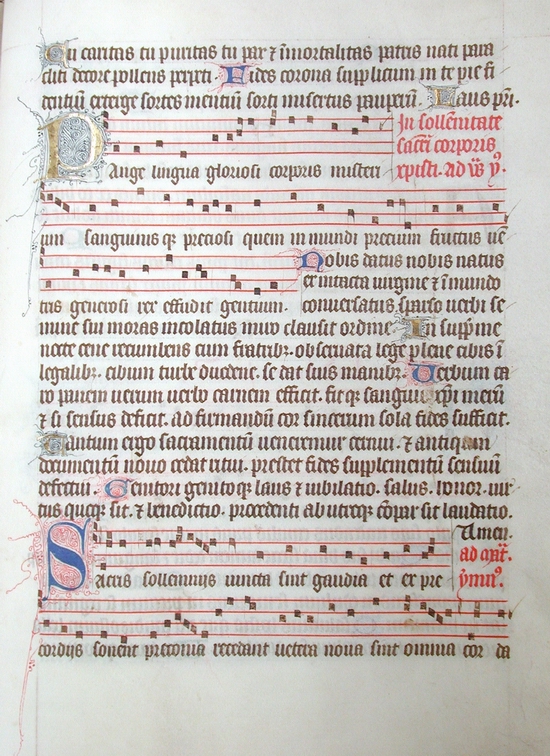 Tu caritas tu puritas tu pax ⁊ īmortalitas patris nati para
cliti decore pollens perpeti. Fides corona supplicum in te pie fi
dentiū exterge sortes mentiū sorti misertus pauperū. Laus pr̄i.
In sollēnitate
sacri corporis
xpisti. ad vs̄ ȳ.
Pange lingua gloriosi corporis misteri
um sanguinis q; preciosi quem in mundi precium fructus uē
tris generosi rex effudit gentium.
Nobis datus nobis natus
ex intacta uirgine ⁊ ī mundo
conuersatus sparso uerbi se
mine sui moras incolatus miro clausit ordine. In supp̄me
nocte cene recumbens cum fratribꝫ. obseruata lege plene cibis ī
legalibꝫ. cibum turbe duodene. se dat suis manibꝫ. Uerbum ca
ro panem uerum uerbo carnem efficit. fit q; sanguis xp̄i merū
⁊ si sensus deficit. ad firmandū cor sincerum sola fides sufficit.
Tantum ergo sacramentū ueneremur cernui. ⁊ antiquum
documentū nouo cedat ritui. prestet fides supplementū sensuū
defectui. Genitori genito q; laus ⁊ iubilatio. salus. honor. uir
tus quoq; sit. ⁊ benedictio. procedenti ab utroq; cōpar sit laudatio.
Amen.
ad mat̄.
ymn9.
Sacris sollemniis iuncta sint gaudia et ex pre
cordiis sonent preconia recedant uetera noua sint omnia cor da